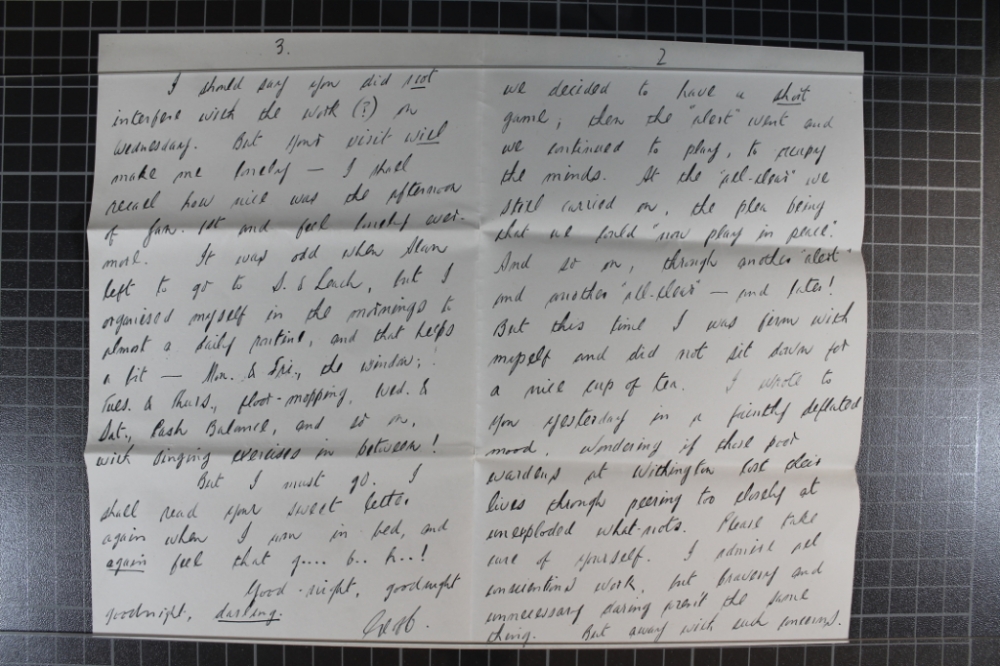 2
we decided to have a short
game; then the "alert" went and
we continued to play, to occupy
the minds. At the "all-clear" we
still carried on, the plea being
that we could "now play in peace".
And so on, through another "alert"
and another "all-clear" — and later!
But this time I was firm with
myself and did not sit down for
a nice cup of tea. I wrote to
you yesterday in a frankly deflated
mood, wondering if those poor
wardens at Withington lost their
lives through peering too closely at
unexploded what-nots. Please take
care of yourself. I admire all
conscientious work, but bravery and
unnecessary daring aren't the same
thing. But away with such concerns.
3.
I should say you did not
interfere with the work (?) on
Wednesday. But your visit will
make me lonely — I shall
recall how nice was the afternoon
of Jan. 1st and feel lonely ever-
more. It was odd when Stan
left to go to S. & Leach, but I
organised myself in the mornings to
almost a daily routine, and that helps
a bit — Mon. & Fri., the window;
Tues. & Thurs., floor-mopping, Wed. &
Sat., Cash Balance, and so on,
with singing exercises in between!
But I must go. I
shall read your sweet letter
again when I am in bed, and
again feel that g.... b.. h..!
Good-night, goodnight
goodnight, darling.